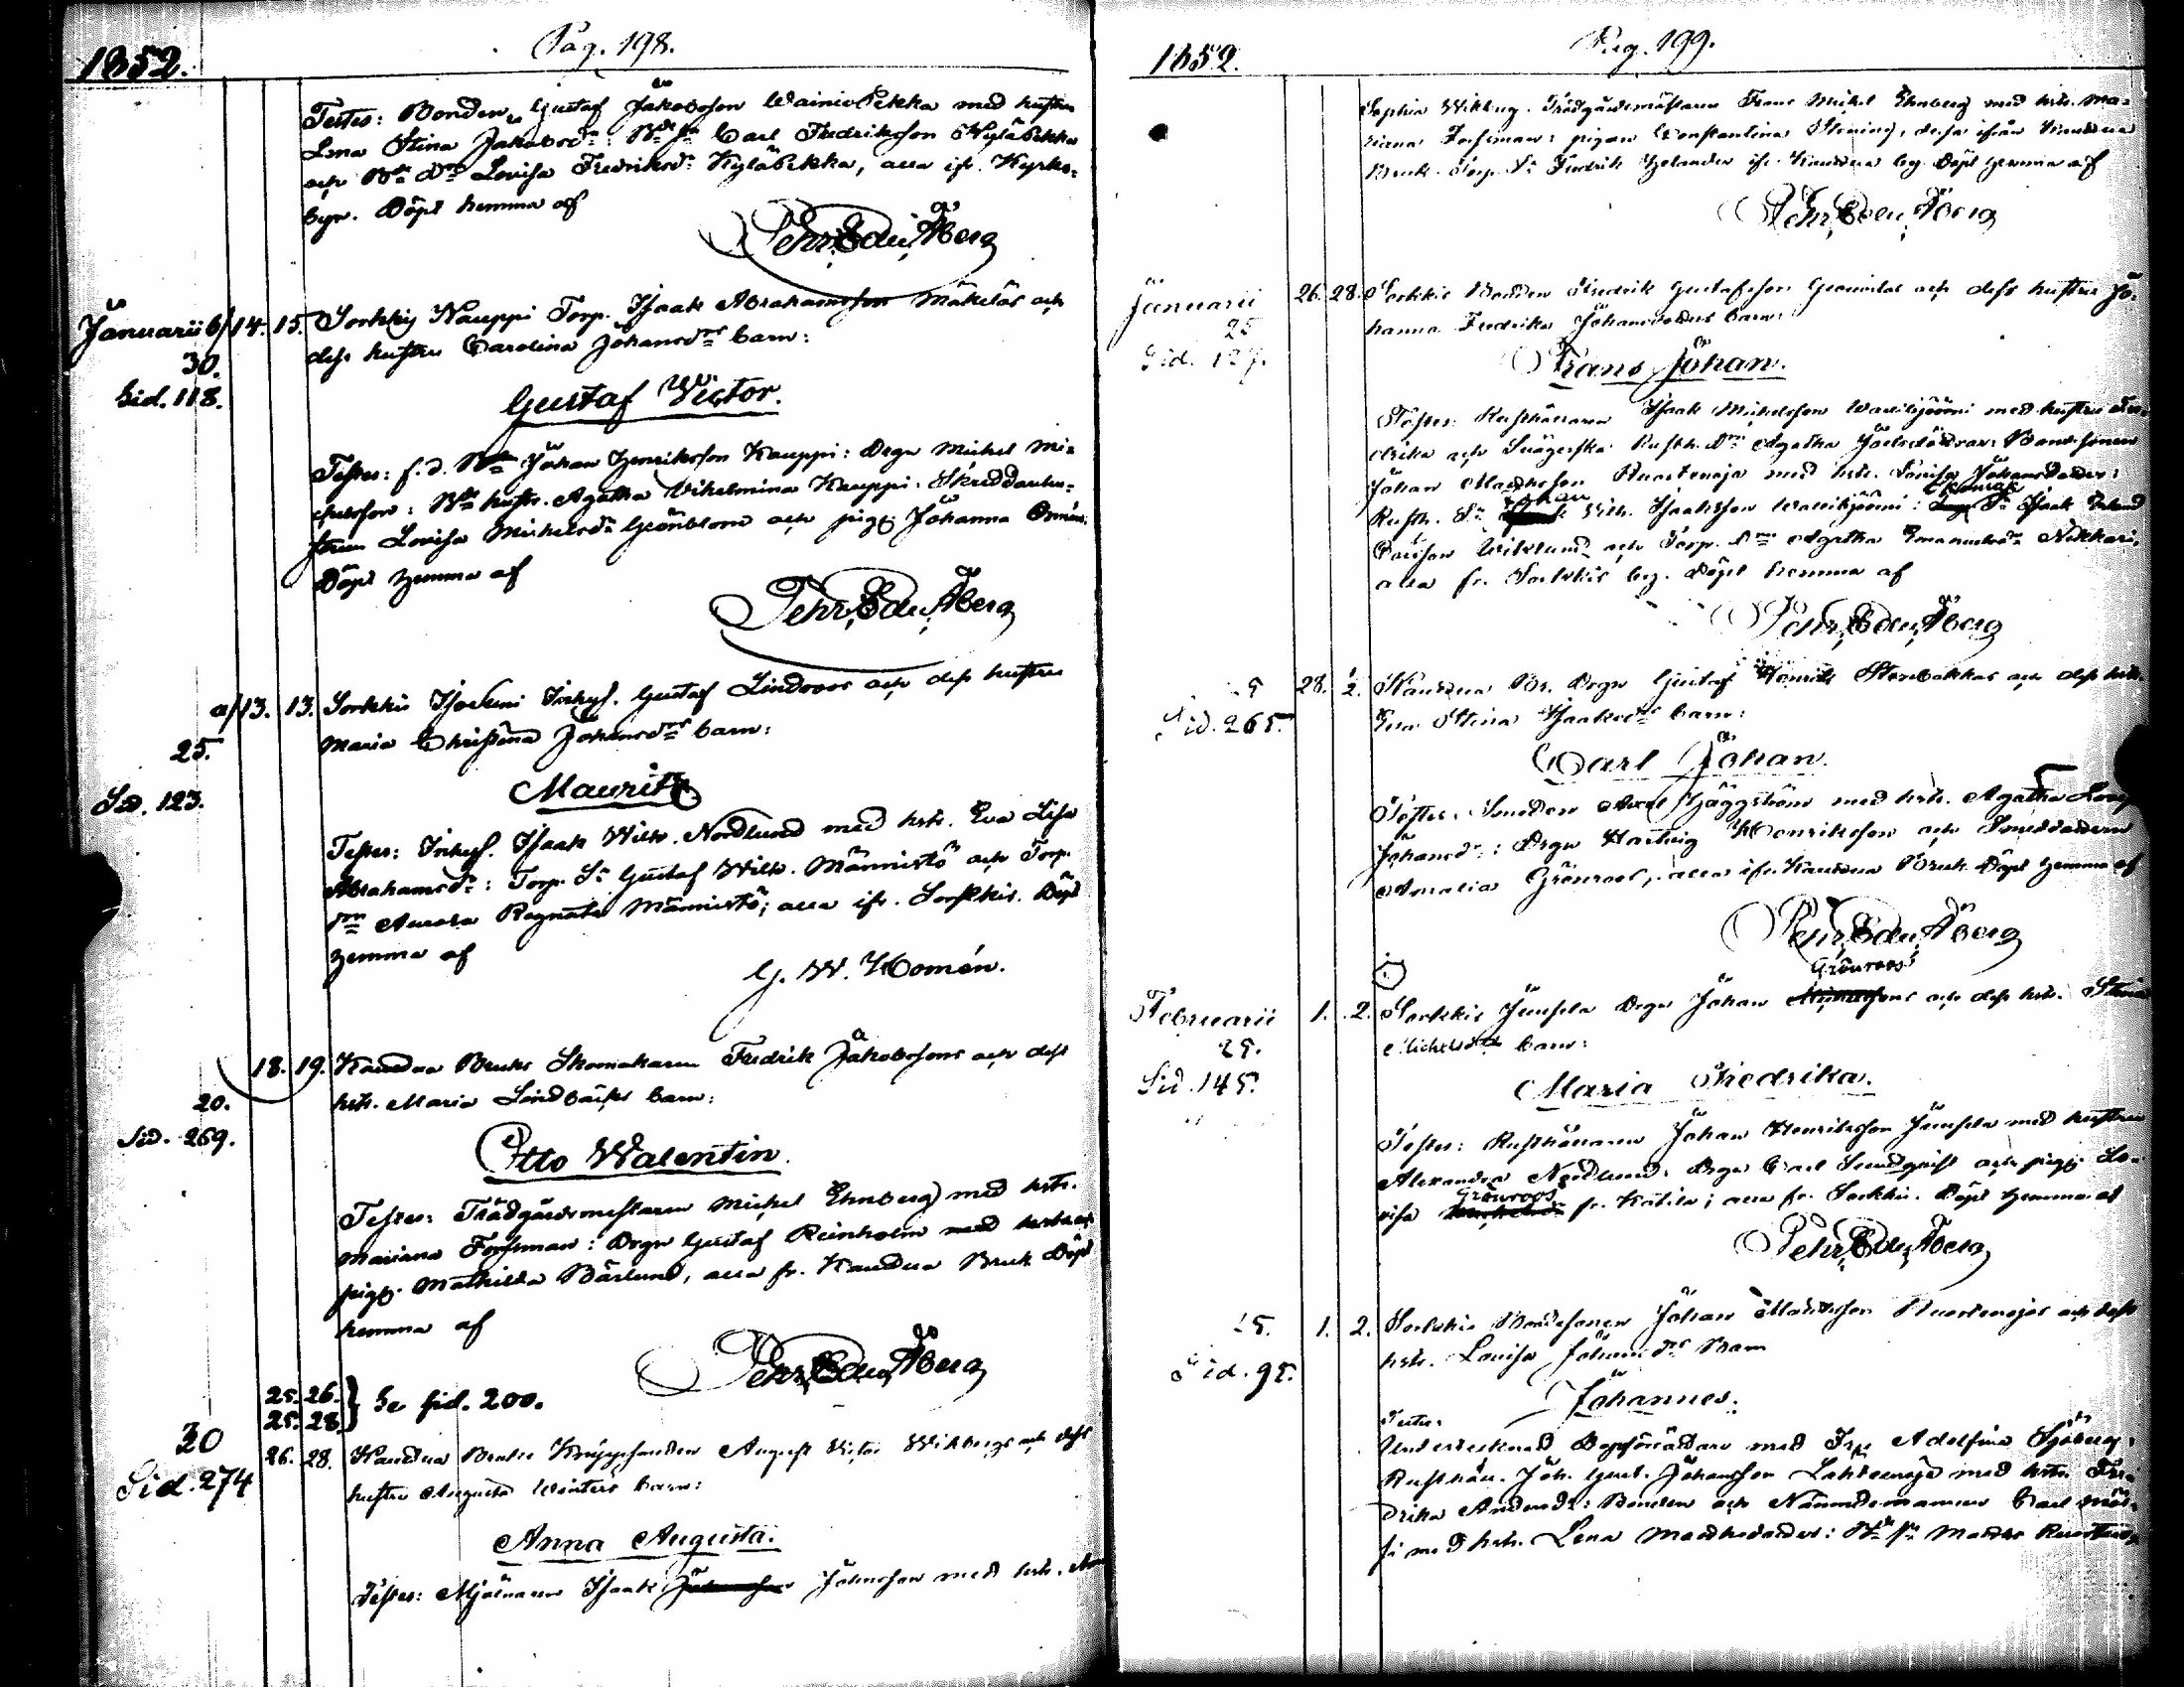 1852.
Pag. 198.
Testes: Bonden Gustaf Jakobsson WainioPekka med hustru
Lena Stina Jakobsdr: Bde sn Carl Fredriksson Kyläpekka
och Bde dr Lovisa Fredriksdr Kyläpekka, alla ifr. Kyrko-
byn. Döpt hemma af
Pehr Edu. Åberg
Januarii 6/14. 15. Sorkkis Kauppi Torp. Isaak Abrahamsson Mäkeläs och
30. dess hustru Carolina Johansdrs barn:
Sid. 118.
Gustaf Victor.
Testes: f. d. Bde Johan Henriksson Kauppi: Drgn Michel Mi-
chelsson: Bde hustr. Agatha Vilhelmina Kauppi: Skräddarhu-
strun Lovisa Michelsdr Grönblom och pig. Johanna
Döpt hemma af
Pehr Edu. Åberg
a/13. 13. Sorkkis Isokuni Inhys. Gustaf Lindroos och dess hustru
25. Maria Christina Johansdrs barn:
Sid. 123.
Mauritz
Testes: Inhys. Isaak Wilh. Nordlund med hstr. Eva Lisa
Abrahamsdr: Torp. Sn Gustaf Wilh. Männistö och Torp.
dr Aurora Regnata Männistö; alla ifr. Sorkkis. Döpt
hemma af
G. W. Homén.
18. 19. Kauttua Bruks Skomakaren Fredrik Jakobssons och dess
20. hstr. Maria Lindbäcks barn:
Sid. 269.
Otto Walentin.
Testes: Trädgårdsmestaren Michel Ehnberg med hstr.
Mariana Forsman: Drgn Gustaf Reinholm med
pig. Mathilda Bärlund, alla fr. Kauttua Bruk Döpt
hemma af
Pehr Edu. Åberg
25. 26.
25. 28. } Se sid. 200.
30 26. 28. Kauttua Bruks August Victor Wikbergs och dess
Sid. 274 hustru Augusta Winters barn:
Anna Augusta.
Testes: Mjölnaren Isaak Johnsson med hstr.
1852.
Pag. 199.
Sophia Wikberg. Trädgårdsmästaren Frans Michel Ehnberg med hstr. Ma-
riana Forsman: pigan Constantina dessa ifrån Kauttua
Bruk. Torp. Sn Fredrik ifr. Kauttua by. Döpt hemma af
Pehr Edu. Åberg
Januarii 26. 28. Sorkkis Bonden Fredrik Gustafsson och dess hustru Jo-
25 hanna Fredrika Johansdotters barn:
Sid. 127.
Frans Johan.
Testes: Rusthållaren Isaak Michelsson Wanikjoni med hustru
Ulrika och Svägerska Rusth. Dr Agatha Bondsonen
Johan Mattsson Ruostenoja med hstr. Lovisa Johansdotter:
Johan
Rusth. Sn Wilh. Isaaksson Sn Isaak
Wiklund och Torp. dr Agatha Emanuelsdr Nikkari,
alla fr. Sorkkis by. Döpt hemma af
Pehr Edu. Åberg
28. 1/2. Kauttua Br. Drgn Gustaf Henrik Stenbackas och dess hstr.
Sid. 265. Eva Stina Isaaksdrs barn:
Carl Johan.
Testes: Smeden Axel Häggström med hstr. Agatha
Johansdr: Drgn Hartvig Henriksson och Smeddottern
Amalia Grönroos, alla ifr. Kauttua Bruk. Döpt hemma af
Pehr Edu. Åberg
Grönroos
Februarii 1. 2. Sorkkis Junsela Drgn Johan och dess hstr. Stina
25. Michelsdrs barn:
Sid. 145.
Maria Fredrika.
Testes: Rusthållaren Johan Henriksson Junsela med hustru
Alexandra Nordlund: Drgn Carl Sundqvist och pig. Lo-
Grönroos
visa fr. Kotila; alla fr. Sorkkis. Döpt hemma af
Pehr Edu. Åberg
25. 1. 2. Sorkkis Bondesonen Johan Mattsson Ruostenojas och dess
Sid. 95. hstr. Lovisa Johansdrs Barn
Johannes.
Testes:
Undertecknad Dopförrättare med Frk. Adolfina Sjöberg:
Rusthåll. Joh. Gust. Johansson Lahtenoja med hstr. Fre-
drika Andersdr: Bonden och Nämndemannen Carl
med hstr. Lena Mattsdotter: Bde sn Matts